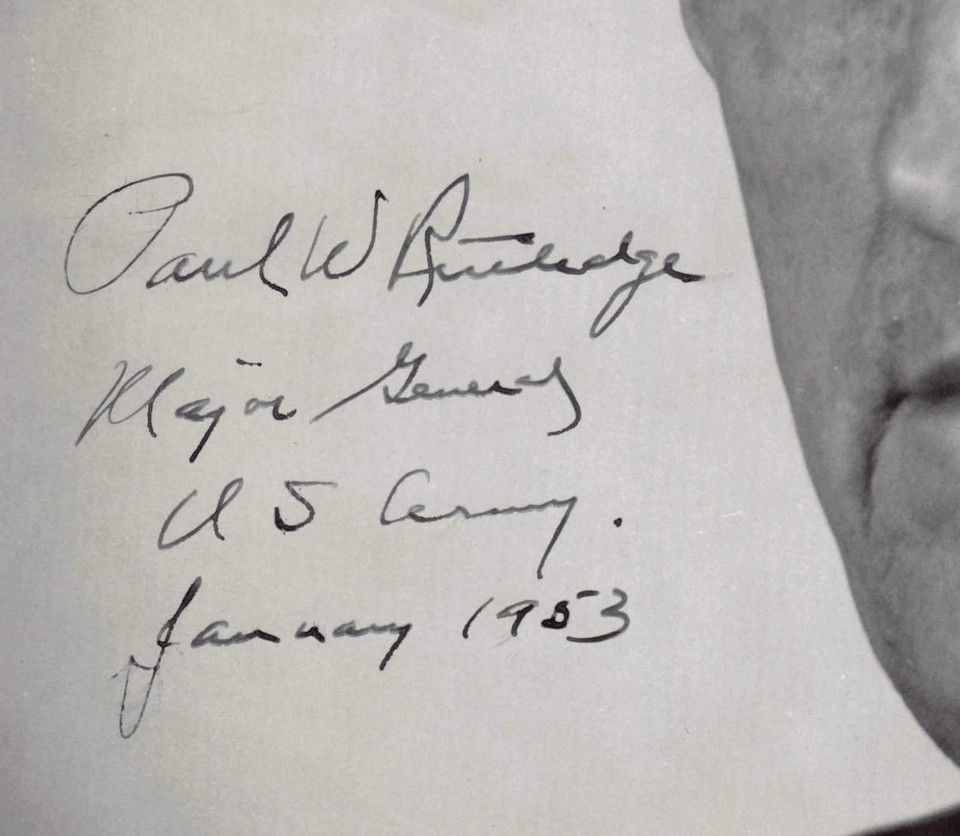 Paul W Rutledge
Major General
U S Army.
January 1953